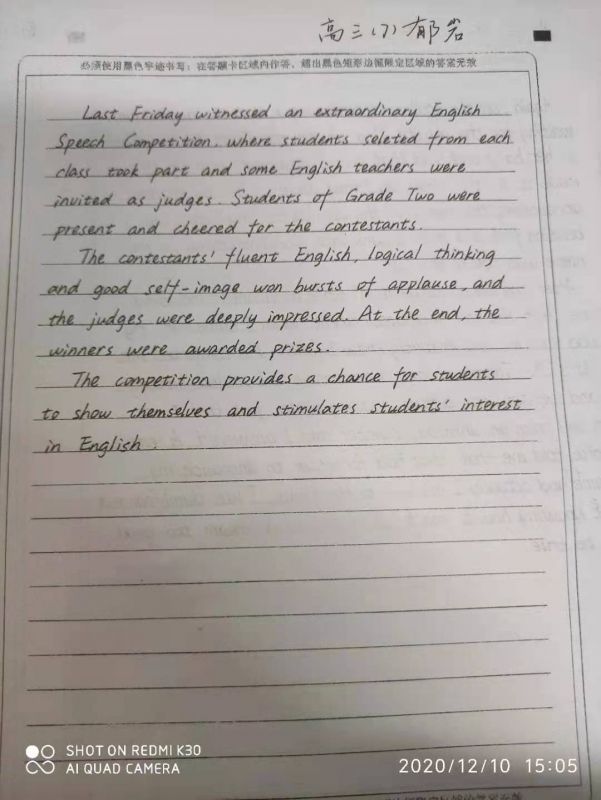 高三(7) 郁岩
必须使用黑色字迹书写; 在答题卡区域内作答, 超出黑色矩形边框限定区域的答案无效
Last Friday witnessed an extraordinary English
Speech Competition, where students seleted from each
class took part and some English teachers were
invited as judges. Students of Grade Two were
present and cheered for the contestants.
The contestants' fluent English, logical thinking
and good self-image won bursts of applause, and
the judges were deeply impressed. At the end, the
winners were awarded prizes.
The competition provides a chance for students
to show themselves and stimulates students' interest
in English.
SHOT ON REDMI K30
AI QUAD CAMERA
2020/12/10 15:05